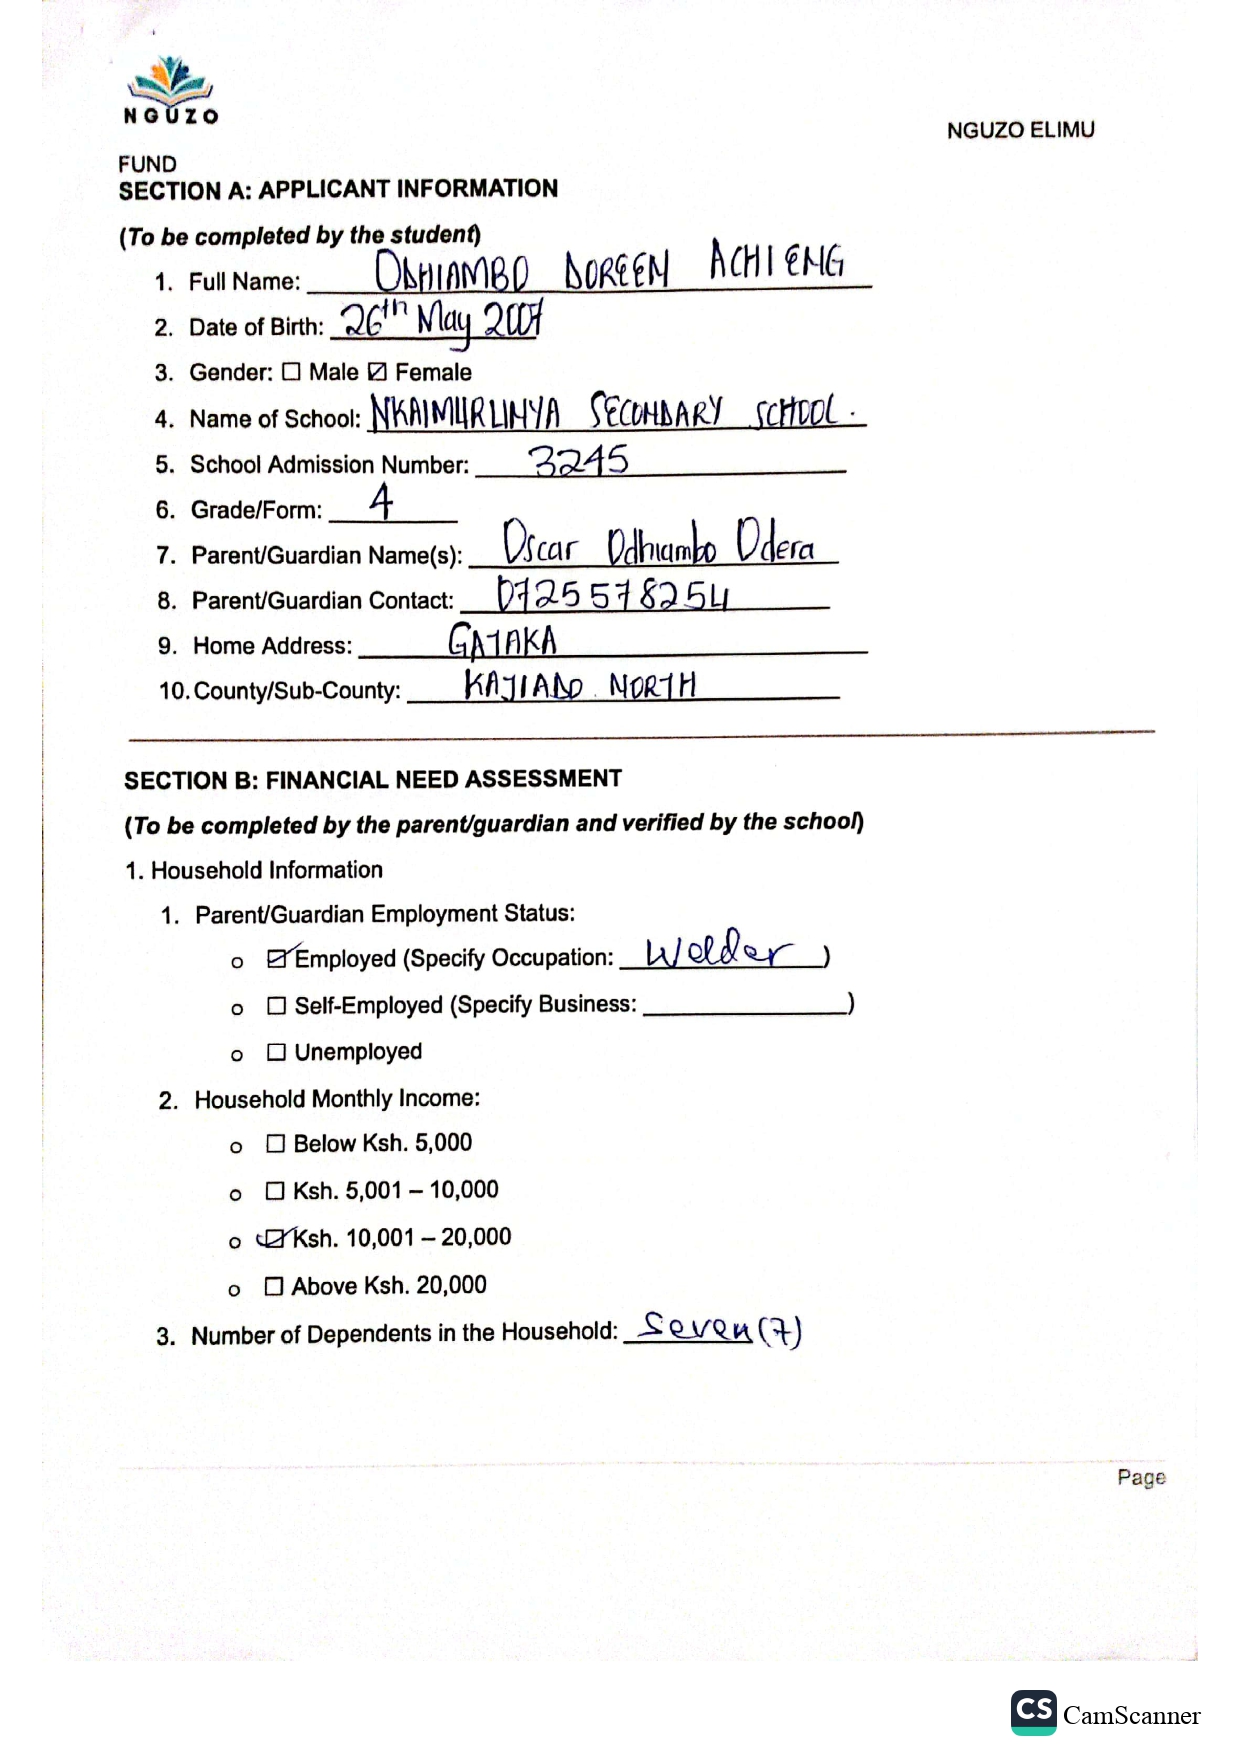 NGUZO
NGUZO ELIMU
FUND
SECTION A: APPLICANT INFORMATION
(To be completed by the student)
1. Full Name: ODHIAMBO DOREEN ACHIENG
2. Date of Birth: 26th May 2007
3. Gender: ☐ Male ☑ Female
4. Name of School: NKAIMURUNYA SECONDARY SCHOOL.
5. School Admission Number: 3245
6. Grade/Form: 4
7. Parent/Guardian Name(s): Oscar Odhiambo Odera
8. Parent/Guardian Contact: 0725578254
9. Home Address: GATAKA
10. County/Sub-County: KAJIADO NORTH
SECTION B: FINANCIAL NEED ASSESSMENT
(To be completed by the parent/guardian and verified by the school)
1. Household Information
1. Parent/Guardian Employment Status:
o ☑ Employed (Specify Occupation: Welder )
o ☐ Self-Employed (Specify Business: )
o ☐ Unemployed
2. Household Monthly Income:
o ☐ Below Ksh. 5,000
o ☐ Ksh. 5,001 – 10,000
o ☑ Ksh. 10,001 – 20,000
o ☐ Above Ksh. 20,000
3. Number of Dependents in the Household: Seven (7)
Page
CS CamScanner